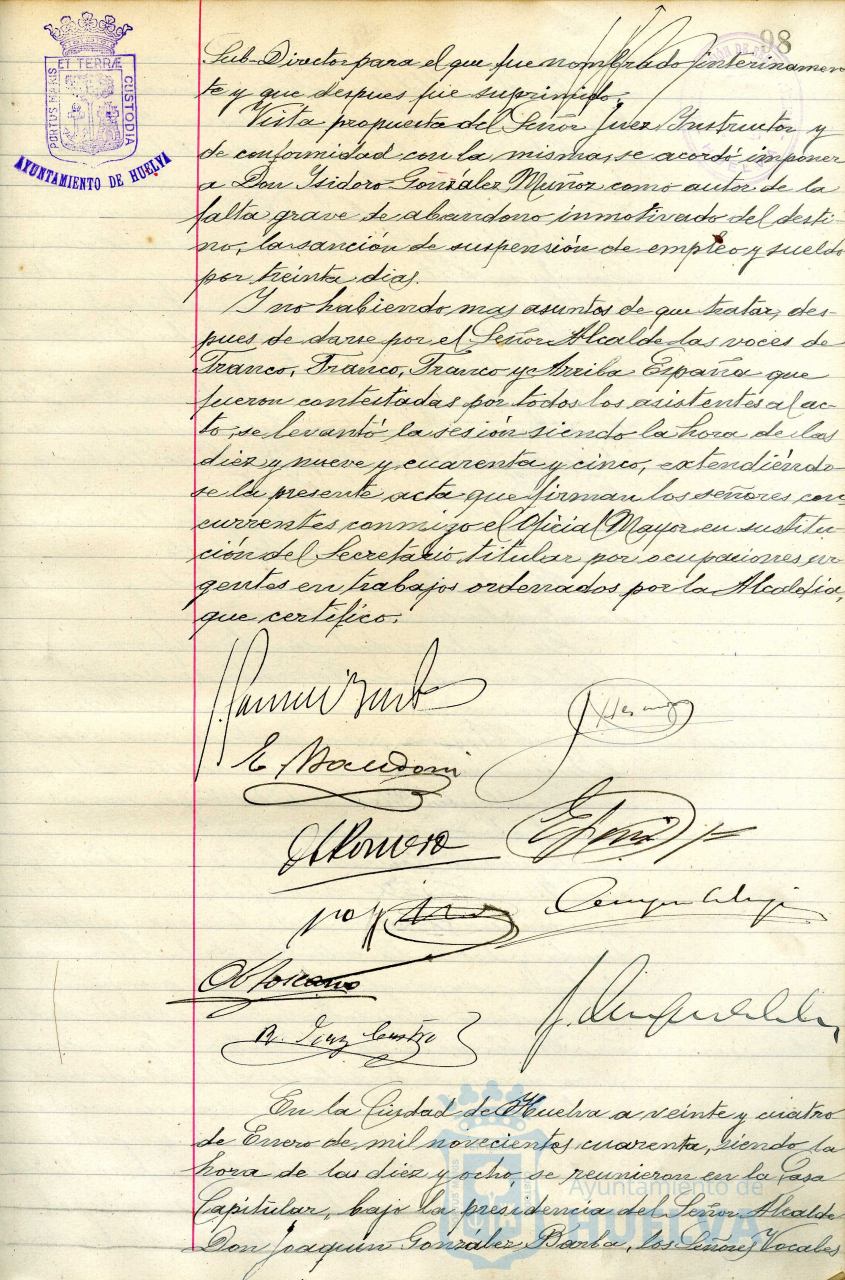 98
ET TERRÆ
PORTUS MARIS
CUSTODIA
AYUNTAMIENTO DE HUELVA
Sub-Director para el que fue nombrado interinamen-
te y que despues fue suprimido.
Vista propuesta del Señor Juez Instructor y
de conformidad con la misma, se acordó imponer
a Don Isidoro González Muñoz como autor de la
falta grave de abandono inmotivado del desti-
no, la sanción de suspensión de empleo y sueldo
por treinta dias.
Y no habiendo mas asuntos de que tratar, des-
pues de darse por el Señor Alcalde las voces de
Franco, Franco, Franco y Arriba España que
fueron contestadas por todos los asistentes al ac-
to, se levantó la sesión siendo la hora de las
diez y nueve y cuarenta y cinco, extendiéndo-
se la presente acta que firman los señores con-
currentes conmigo el Oficial Mayor en sustitu-
ción del Secretario titular por ocupaciones ur-
gentes en trabajos ordenados por la Alcaldia,
que certifico.
Romero
R. Diaz Castro
En la Ciudad de Huelva a veinte y cuatro
de Enero de mil novecientos cuarenta, siendo la
hora de las diez y ocho, se reunieron en la Casa
Capitular, bajo la presidencia del Señor Alcalde
Don Joaquín González Barba, los Señores Vocales
Ayuntamiento de
HUELVA